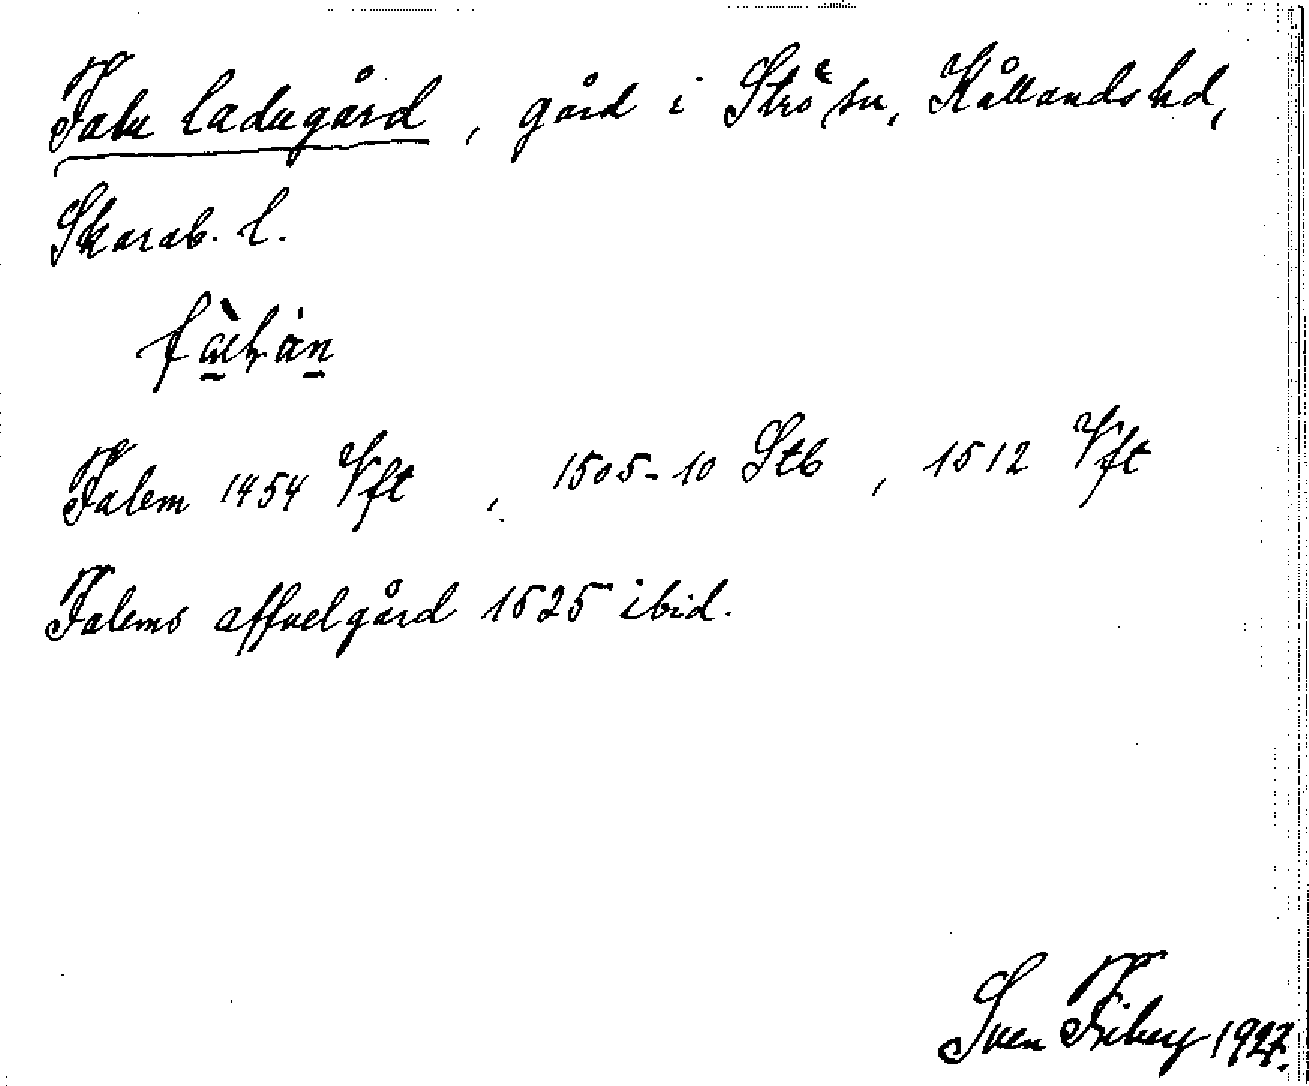 Fala ladugård, gård i Strö sn, Kållands hd,
Skarab. l.
Falem 1454 Vft, 1505-10 Stb, 1512 Vft
Falems affvelgård 1525 ibid.
Sven Friberg 1927.